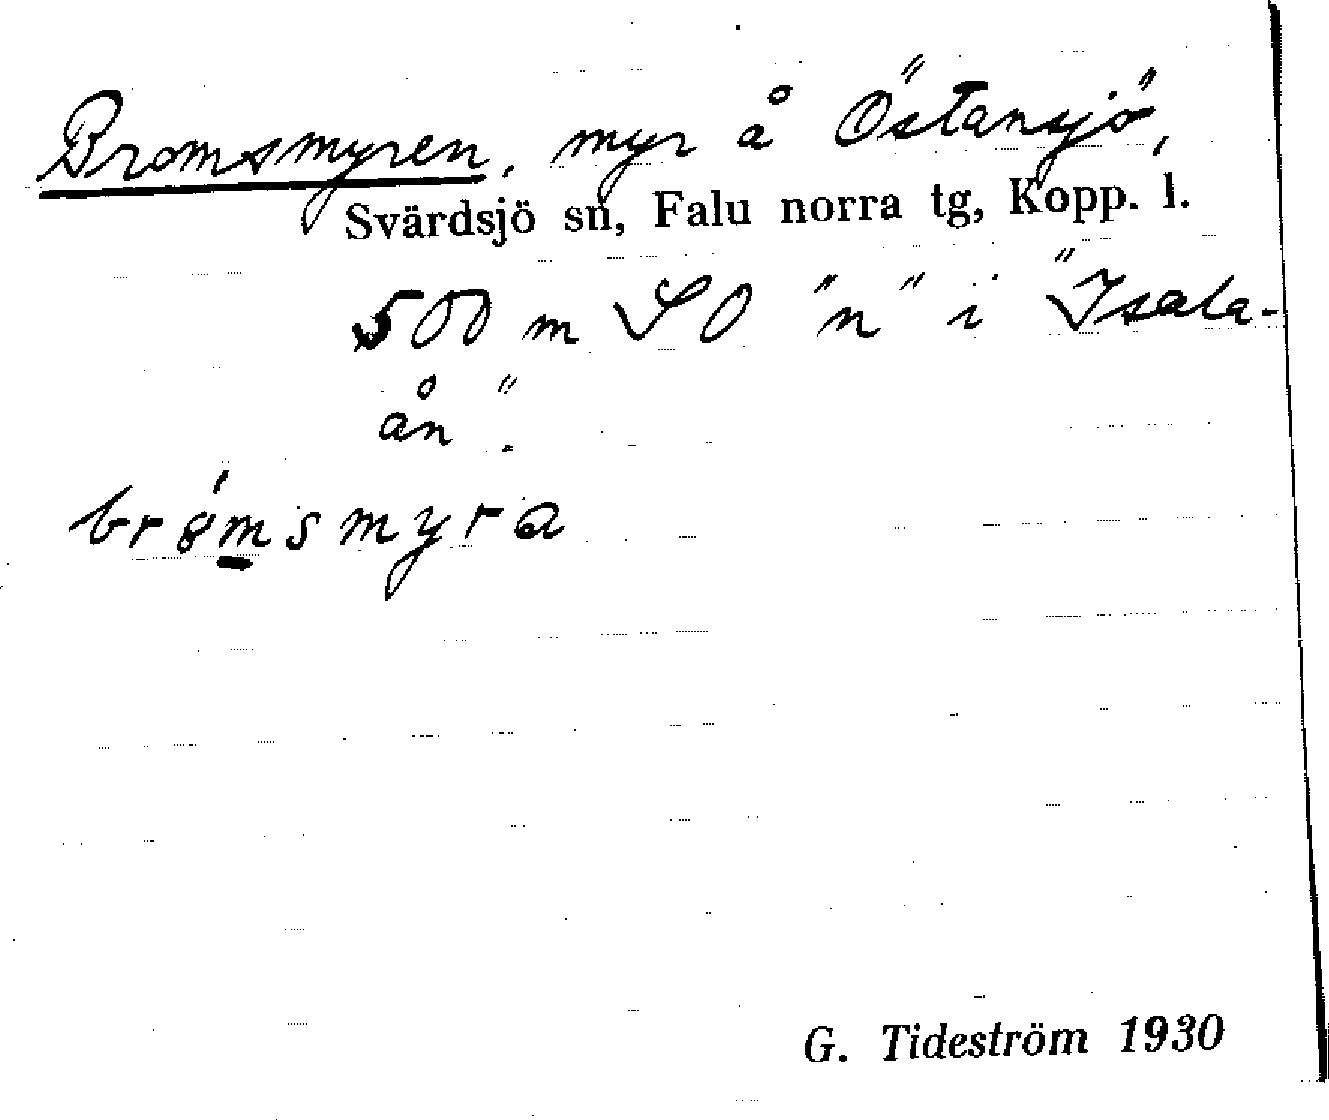 Bromsmyren, myr å "Östansjö",
Svärdsjö sn, Falu norra tg, Kopp. l.
500 m SO "n" i "Isala-
ån".
brømsmyra
G. Tideström 1930